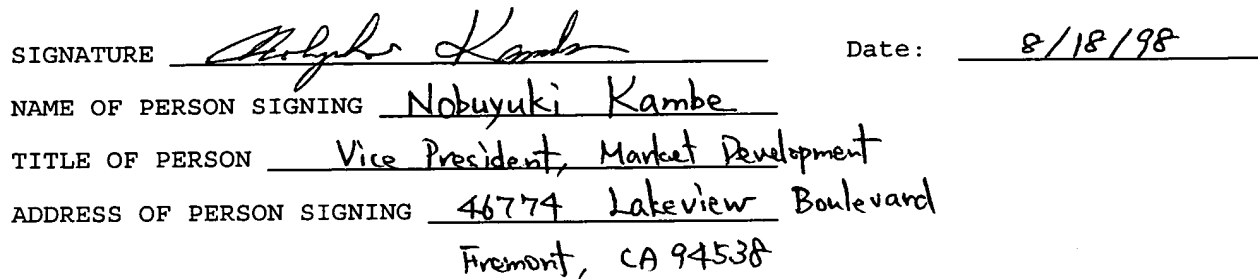 SIGNATURE Nobuyuki Kambe Date: 8/18/98
NAME OF PERSON SIGNING Nobuyuki Kambe
TITLE OF PERSON Vice President, Market Development
ADDRESS OF PERSON SIGNING 46774 Lakeview Boulevard
Fremont, CA 94538